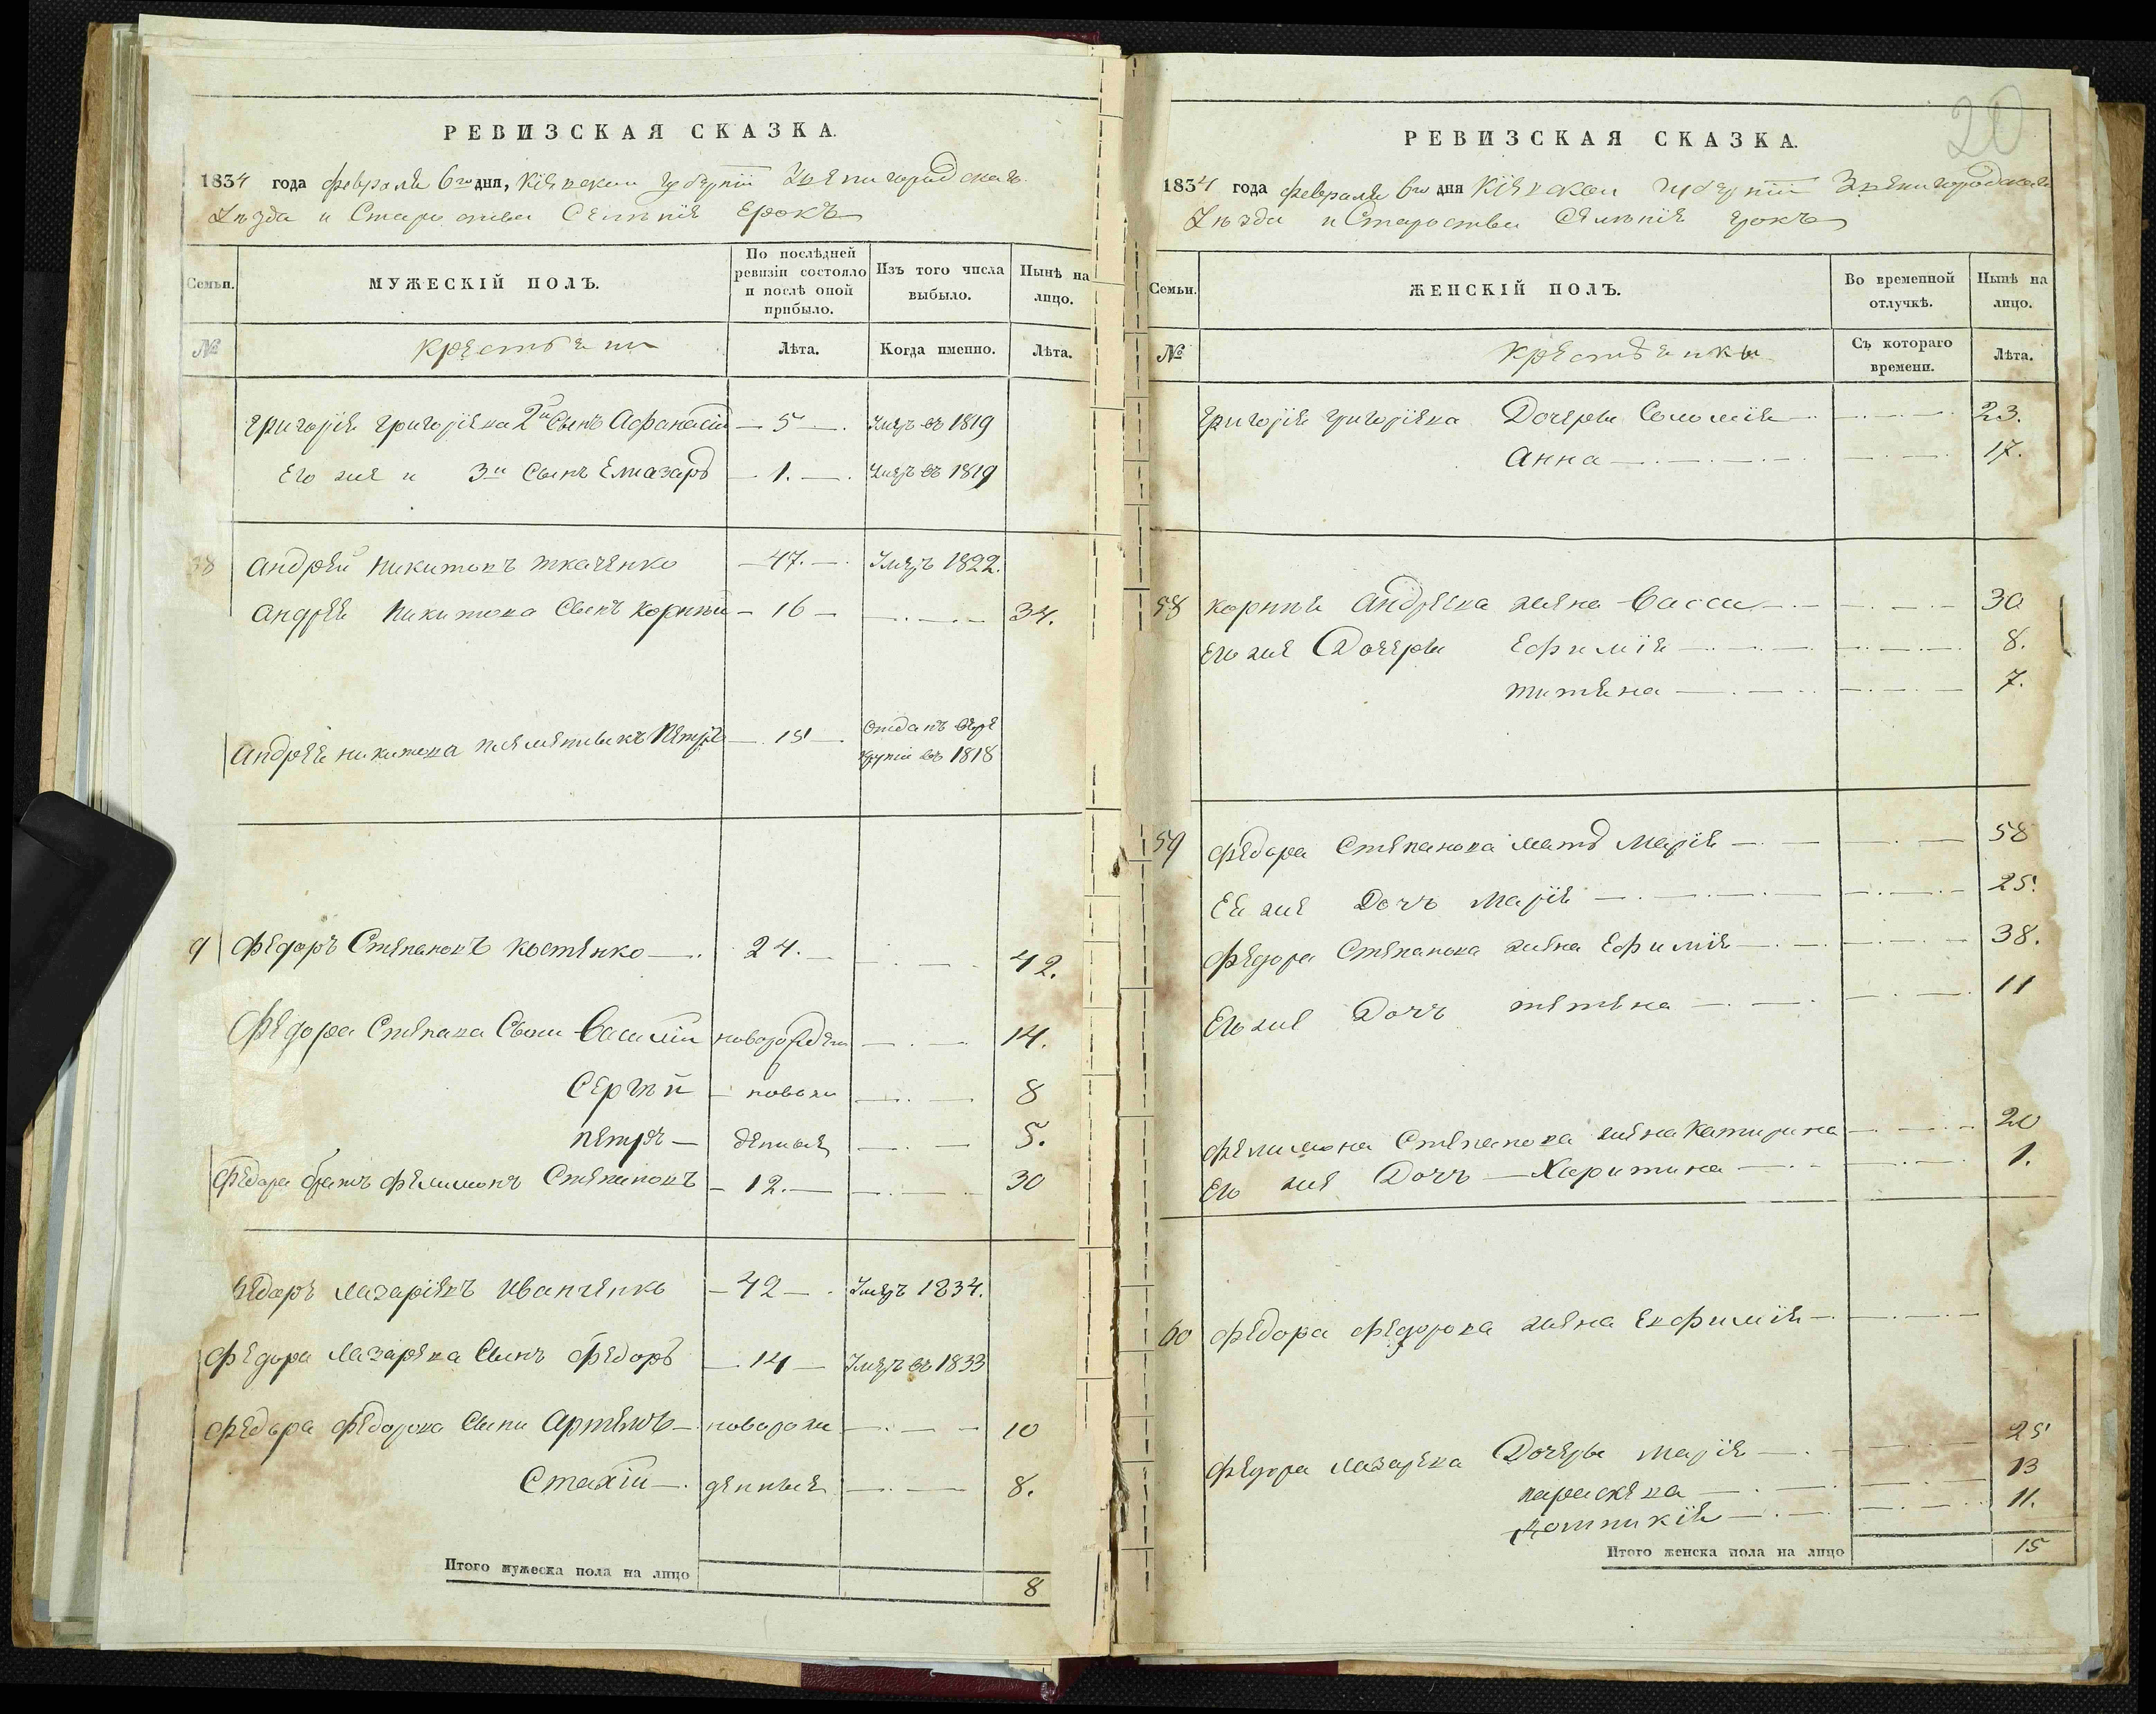 РЕВИЗСКАЯ СКАЗКА.
1834 года февраля 6го дня, Кіевской губерніи Звенигородскаго
Уѣзда и Староства Селѣнія Ерокъ
Семьи.
МУЖЕСКІЙ ПОЛЪ.
По послѣдней ревизіи состояло и послѣ оной прибыло.
Изъ того числа выбыло.
Нынѣ на лицо.
№
Крестьяни
Лѣта.
Когда именно.
Лѣта.
Григорія Григоріева 2й Сынъ Афанасій — 5 — Умеръ въ 1819
Его же и 3й Сынъ Елиазаръ — 1. — Умеръ въ 1819
58 Андрей Никитовъ Ткаченко — 47. — Умеръ 1822.
Андрея Никитова Сынъ Корнѣй — 16 — 34.
Андрея Никитова племянникъ Петръ — 15 — Отданъ въ ре
круты въ 1818
9 Федоръ Степановъ Костенко — 24. — 42.
Федора Степана Сыни Василій новорожден — 14.
Сергѣй — новоро — 8
Петръ — денные — 5.
Федора братъ Филимонъ Степановъ — 12. — 30
Федоръ Лазаріевъ Иванченко — 42 — Умеръ 1834.
Федора Лазарева Сынъ Федоръ — 14 — Умеръ въ 1833
Федора Федорова Сыни Артемъ — новорож — 10
Стахій — денные — 8.
Итого мужеска пола на лицо 8
20
РЕВИЗСКАЯ СКАЗКА.
1834 года февраля 6го дня Кіевской губерніи Звенигородскаго
Уѣзда и Староства Селѣнія Ерокъ
Семьи.
ЖЕНСКІЙ ПОЛЪ.
Во временной отлучкѣ.
Нынѣ на лицо.
№
Крестьянки
Съ котораго времени.
Лѣта.
Григорія Григоріева Дочери Соломія — 23.
Анна — 17.
58 Корнѣя Андреева жена Васса — 30
Его же Дочери Ефимія — 8.
Титяна — 7.
59 Федора Степанова мать Марія — 58
Ея же Дочъ Марія — 25.
Федора Степанова жена Ефимія — 38.
Его же Дочъ Тетяна — 11
Филимона Степанова жена Катирина — 20
Его же Дочъ — Харитина — 1.
60 Федора Федорова жена Евфимія —
Федора Лазарева Дочери Марія — 25
Параскева — 13
Домникія — 11.
Итого женска пола на лицо 15